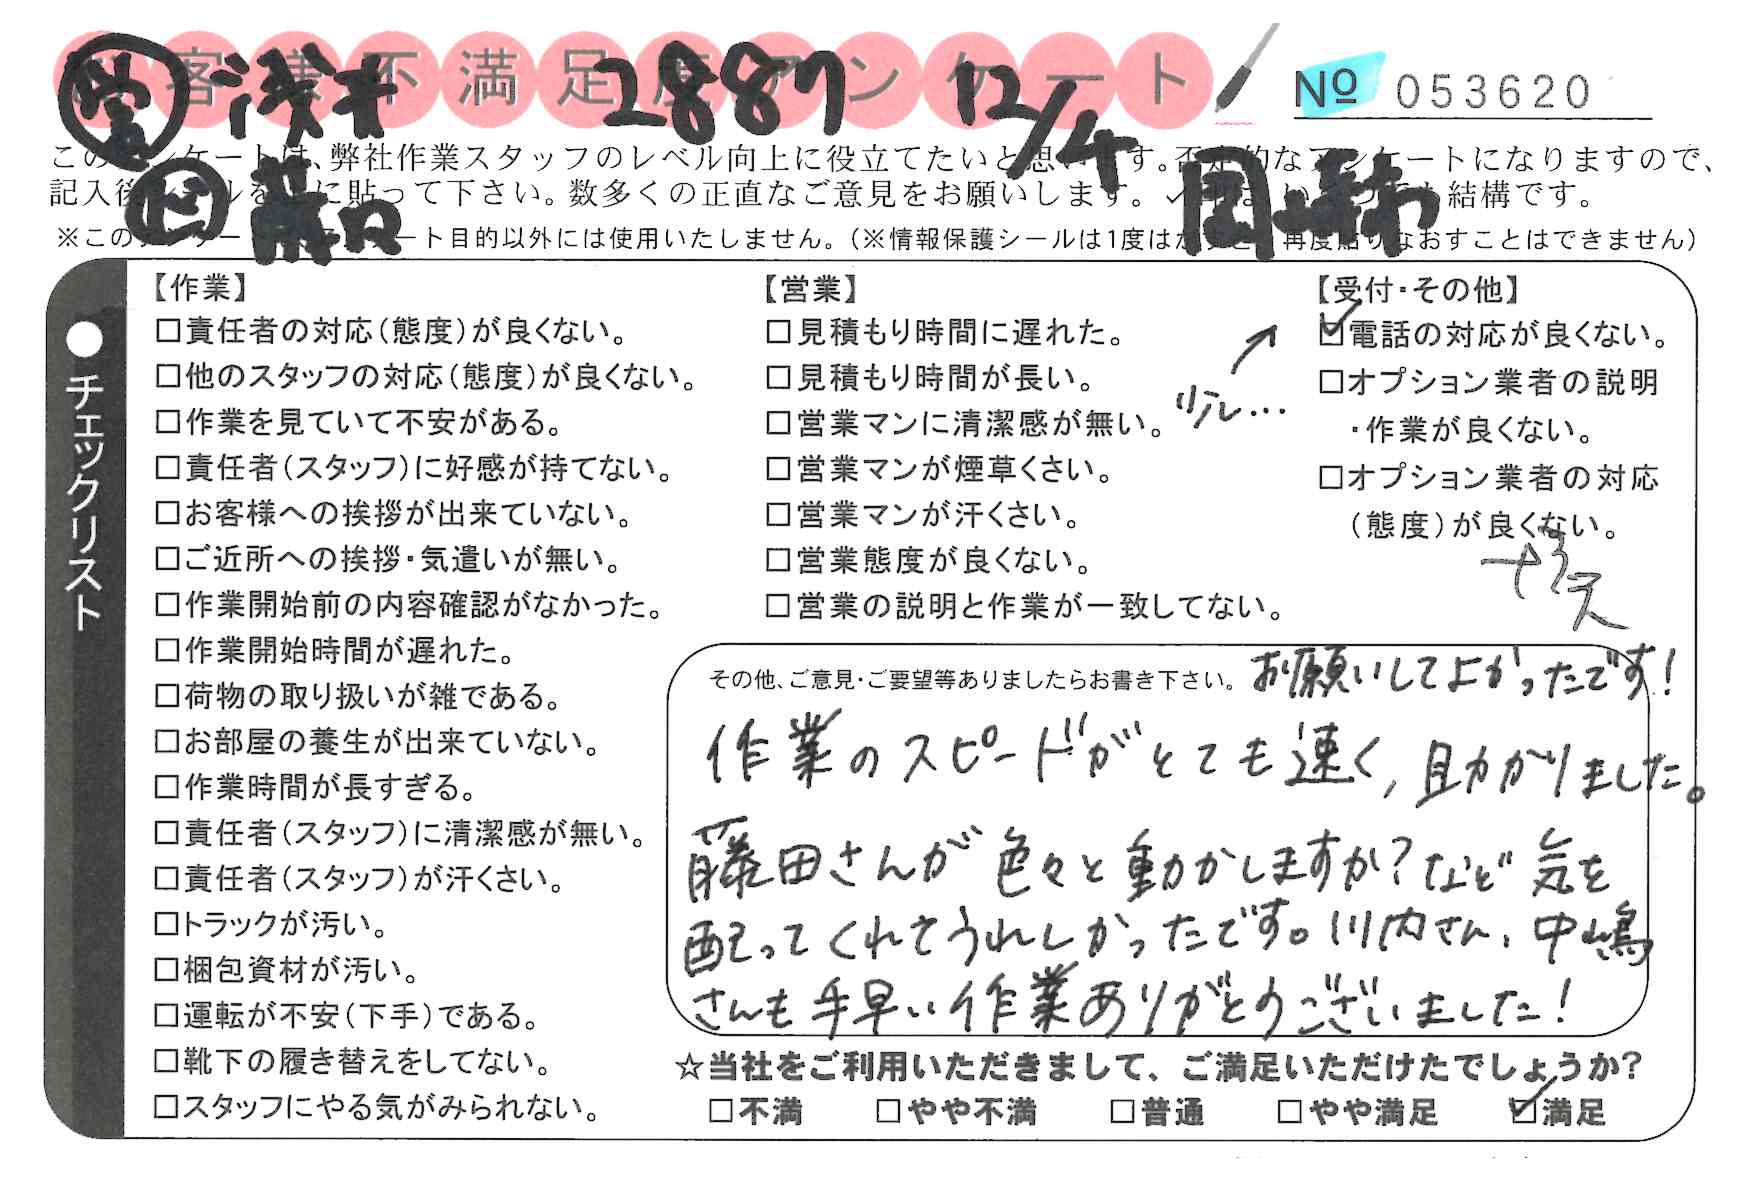 お客様不満足度アンケート
営 浅井 2887 12/4
№ 053620
このアンケートは、弊社作業スタッフのレベル向上に役立てたいと思います。否定的なアンケートになりますので、
記入後シールを上に貼って下さい。数多くの正直なご意見をお願いします。
※このアンケートはアンケート目的以外には使用いたしません。（※情報保護シールは1度はがすと、再度貼りなおすことはできません）
●チェックリスト
【作業】
□責任者の対応（態度）が良くない。
□他のスタッフの対応（態度）が良くない。
□作業を見ていて不安がある。
□責任者（スタッフ）に好感が持てない。
□お客様への挨拶が出来ていない。
□ご近所への挨拶・気遣いが無い。
□作業開始前の内容確認がなかった。
□作業開始時間が遅れた。
□荷物の取り扱いが雑である。
□お部屋の養生が出来ていない。
□作業時間が長すぎる。
□責任者（スタッフ）に清潔感が無い。
□責任者（スタッフ）が汗くさい。
□トラックが汚い。
□梱包資材が汚い。
□運転が不安（下手）である。
□靴下の履き替えをしてない。
□スタッフにやる気がみられない。
【営業】
□見積もり時間に遅れた。
□見積もり時間が長い。
□営業マンに清潔感が無い。
□営業マンが煙草くさい。
□営業マンが汗くさい。
□営業態度が良くない。
□営業の説明と作業が一致してない。
少し…
【受付・その他】
☑電話の対応が良くない。
□オプション業者の説明
・作業が良くない。
□オプション業者の対応
（態度）が良くない。
その他、ご意見・ご要望等ありましたらお書き下さい。
お願いしてよかったです！
作業のスピードがとても速く，助かりました。
藤田さんが色々と動かしますか？など気を
配ってくれてうれしかったです。川内さん、中嶋
さんも手早い作業ありがとうございました！
☆当社をご利用いただきまして、ご満足いただけたでしょうか？
□不満 □やや不満 □普通 □やや満足 ☑満足